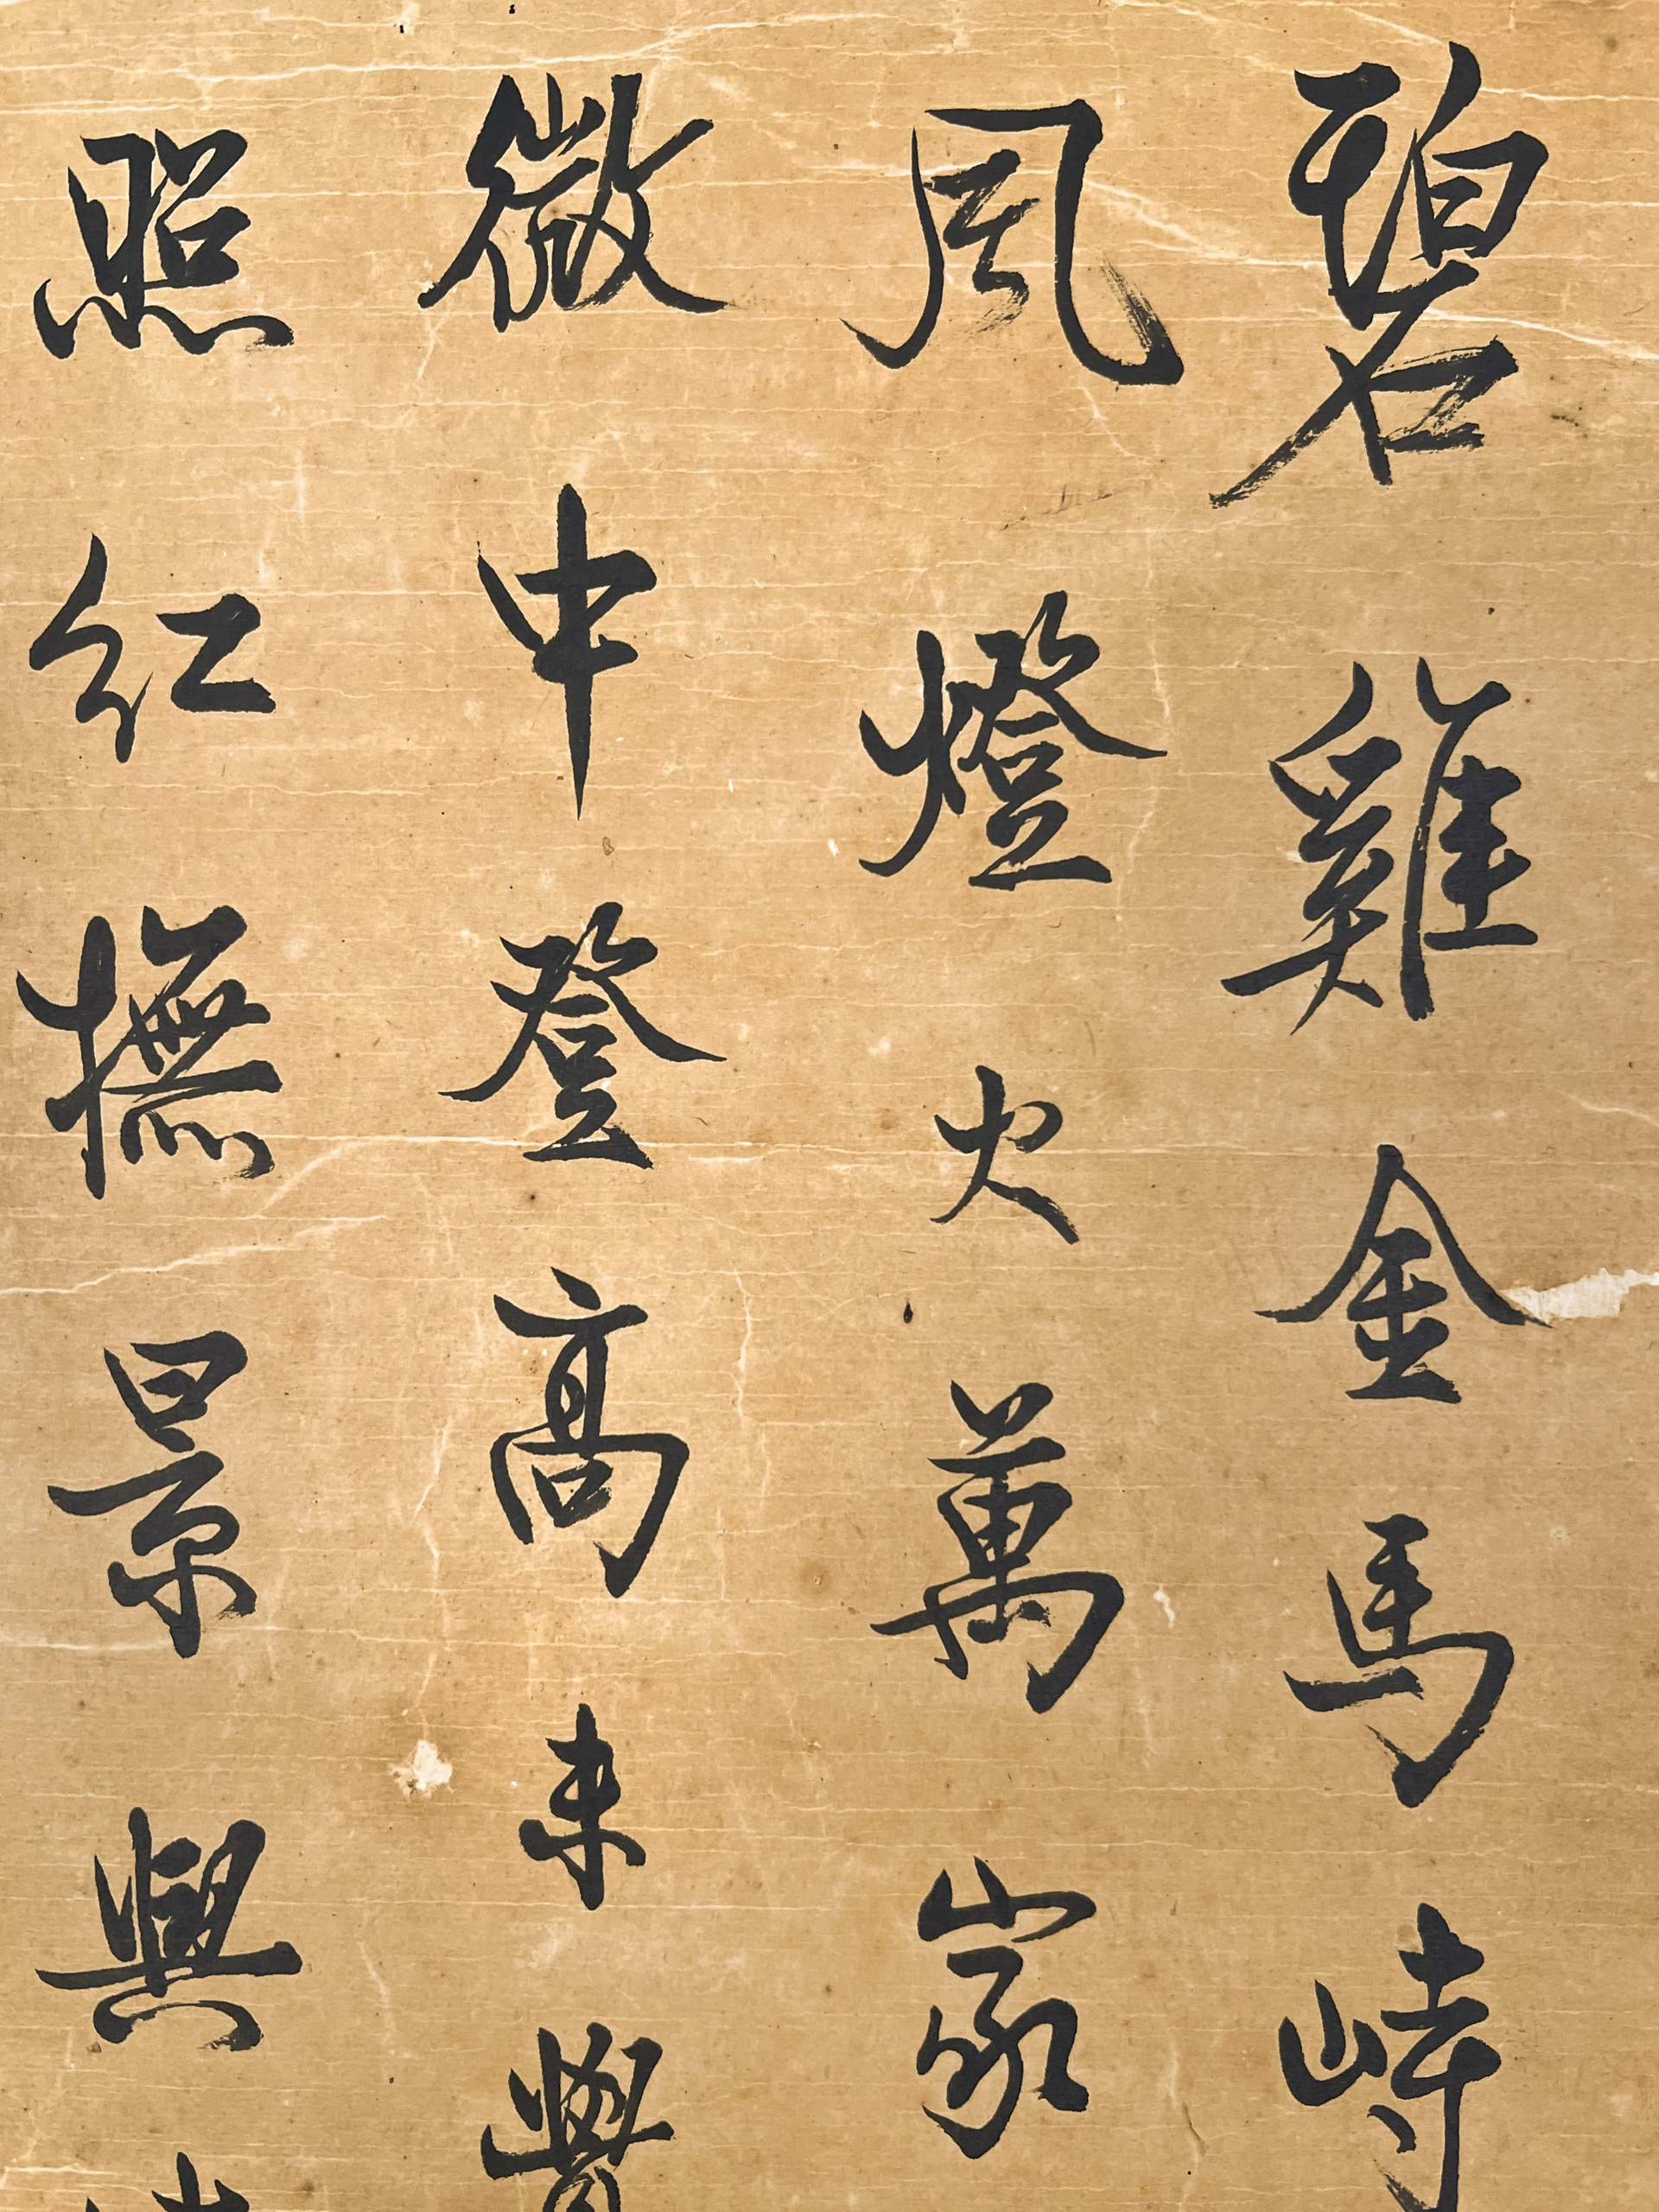 碧雞金馬峙
風燈火萬家
微中登高未覺
照紅撫景興